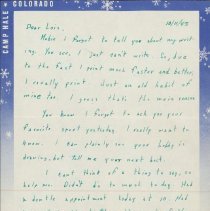 CAMP HALE COLORADO
10/11/43
Dear Lois,
Mabie I forgot to tell you about my writ-
ing. You see, I just can't write. So, due
to the fact I print much faster and better,
I really print. Just an old habit of
mine too, I guess that's the main reason
You know I forgot to ask you your
favorite sport yesterday. I really want to
know. I can plainly see your hobby is
drawing, but tell me your next best.
I can't think of a thing to say, so
help me. Didn't do to much today. Had
a dentle appointment today at 10. Had